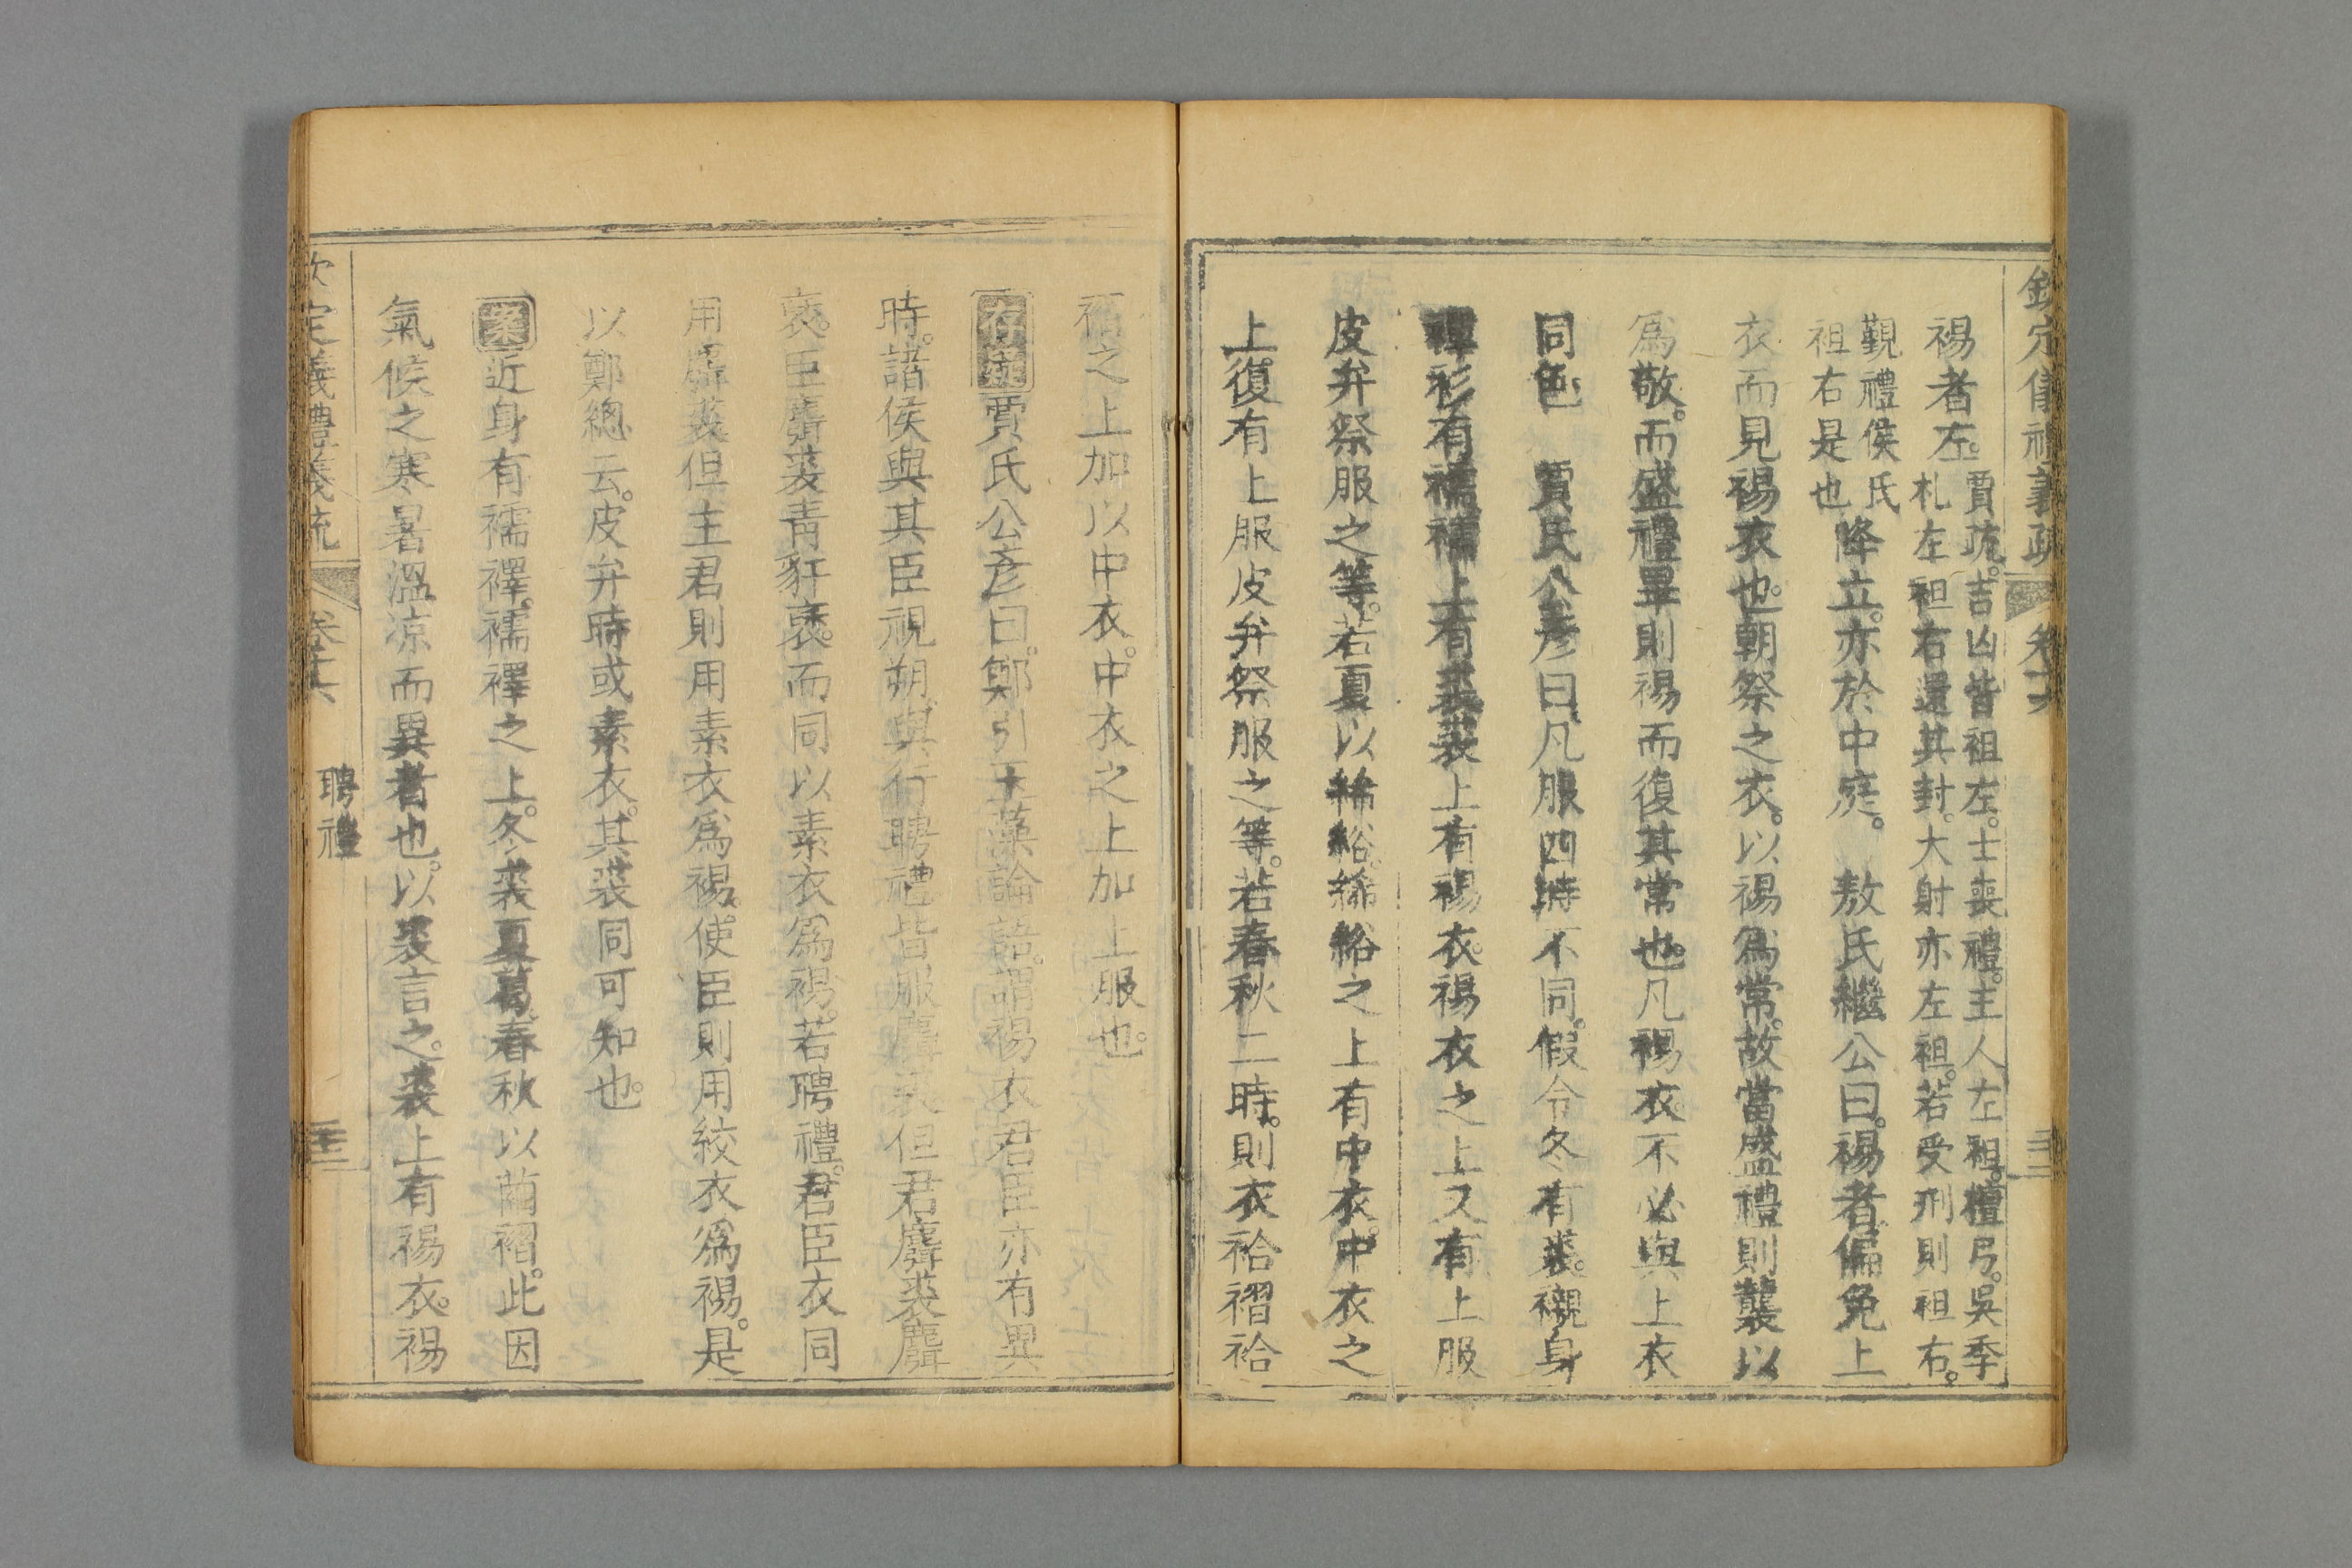 欽定儀禮義疏 卷十六
裼者左。賈疏。吉凶皆袒左。士喪禮。主人左袒。檀弓。吳季
札左袒右還其封。大射亦左袒。若受刑則袒右。
覲禮侯氏
袒右是也降立。亦於中庭。 敖氏繼公曰。裼者偏免上
衣而見裼衣也。朝祭之衣。以裼爲常。故當盛禮則襲以
爲敬。而盛禮畢則裼而復其常也。凡裼衣不必與上衣
同色。 賈氏公彥曰。凡服四時不同。假令冬有裘。襯身
襌衫有襦襦上有裘裘上有裼衣。裼衣之上又有上服
皮弁祭服之等。若夏以絺綌。絺綌之上有中衣。中衣之
上。復有上服皮弁祭服之等。若春秋二時。則衣袷褶袷
褶之上加以中衣。中衣之上加上服也。
存疑賈氏公彥曰。鄭引玉藻論語。謂裼衣君臣亦有異
時。諸侯與其臣視朔。與行聘禮皆服麑裘但君麛裘麛
褎。臣麛裘靑豻褎。而同以素衣爲裼。若聘禮。君臣衣同
用麛裘但主君則用素衣爲裼。使臣則用絞衣爲裼。是
以鄭總云。皮弁時或素衣。其裘同可知也。
案近身有襦襗。襦襗之上。冬裘夏葛。春秋以繭褶。此因
氣候之寒暑溫凉而異者也。以裘言之。裘上有裼衣。裼
欽定儀禮義疏 卷十六 聘禮